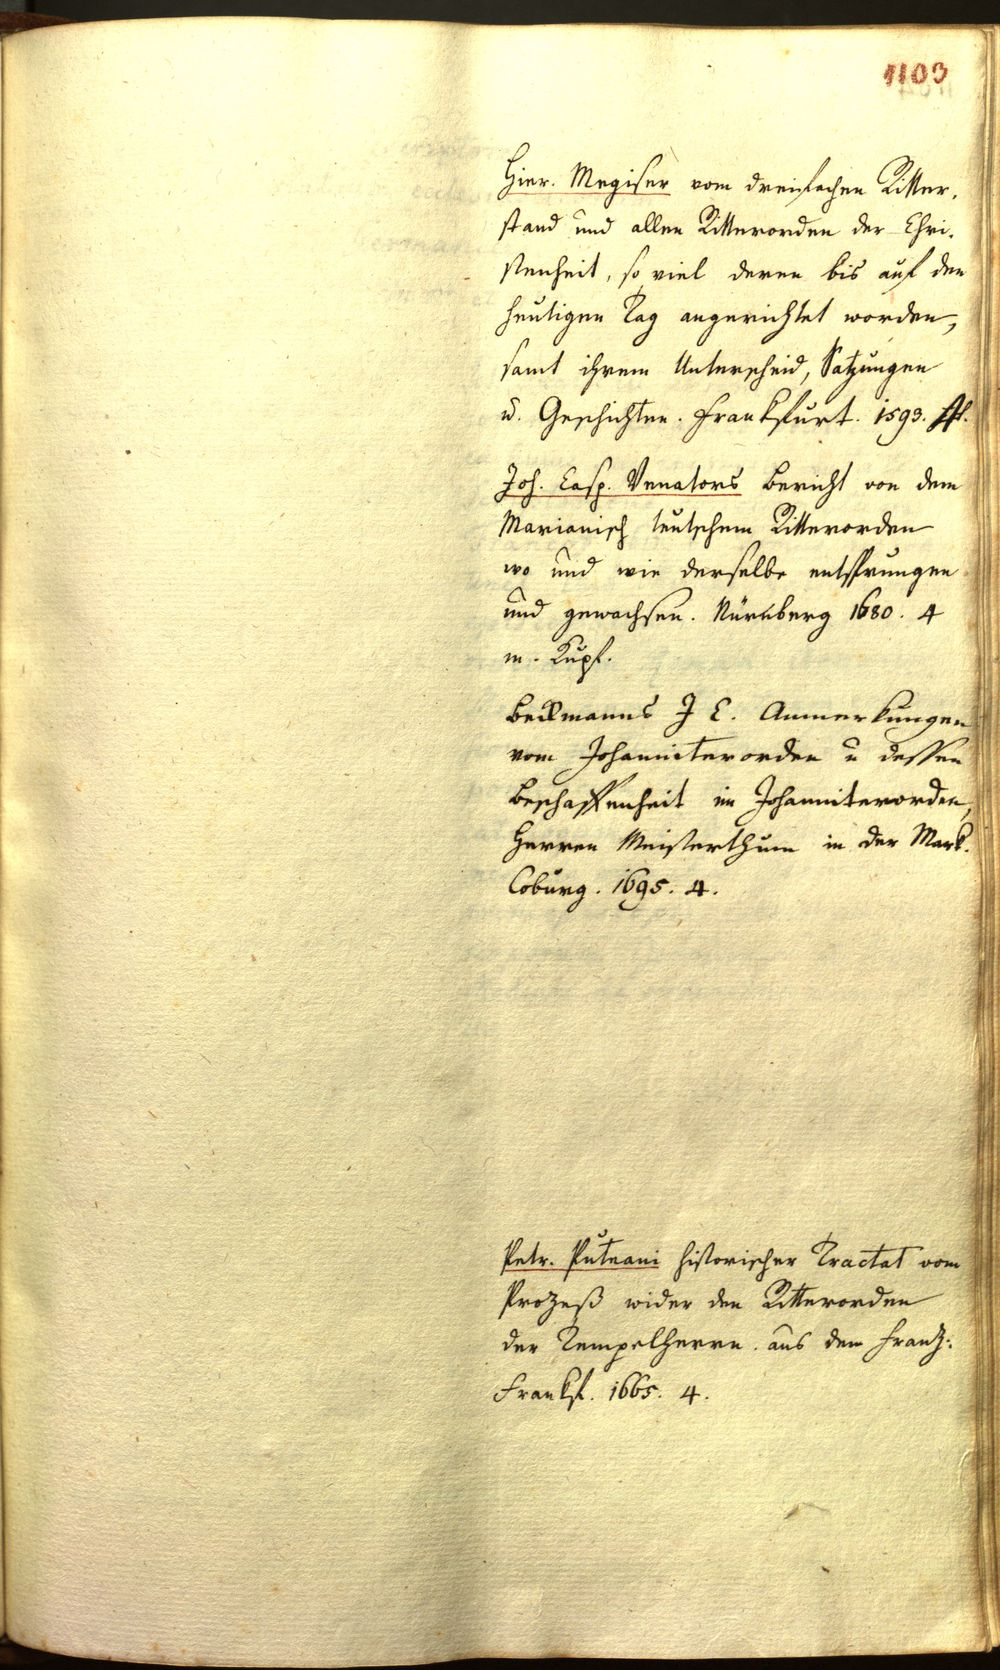 1103
Hier. Megiser vom dreifachen Ritter-
stand und allen Ritterorden der Chri-
stenheit, so viel deren bis auf den
heutigen Tag angerichtet worden,
samt ihrem Unterscheid, Satzungen
u. Geschichten. Frankfurt. 1593.
Joh. Casp. Venators Bericht von dem
Marianisch teutschem Ritterorden
wo und wie derselbe entsprungen
und gewachsen. Nürnberg 1680. 4
m. Kupf.
Beckmanns J C. Anmerkungen
vom Johanniterorden u dessen
Beschaffenheit im Johanniterorden,
Herren Meisterthum in der Mark.
Coburg. 1695. 4.
Petr. Puteani historischer Tractat vom
Prozeß wider den Ritterorden
der Tempelherrn. aus dem Franz:
Frankf. 1665. 4.